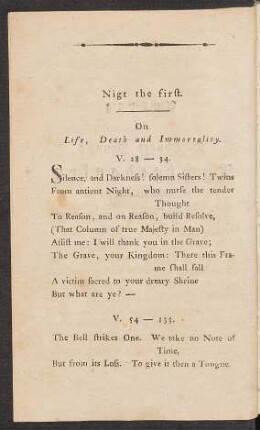 Nigt the first.
On
Life, Death and Immortality.
V. 28 — 54.
Silence, and Darkness! solemn Sisters! Twins
From antient Night, who nurse the tender
Thought
To Reason, and on Reason, build Resolve,
(That Column of true Majesty in Man)
Assist me: I will thank you in the Grave;
The Grave, your Kingdom: There this Fra-
me shall fall
A victim sacred to your dreary Shrine
But what are ye? —
V. 54 — 133.
The Bell strikes One. We take no Note of
Time,
But from its Loss. To give it then a Tongue